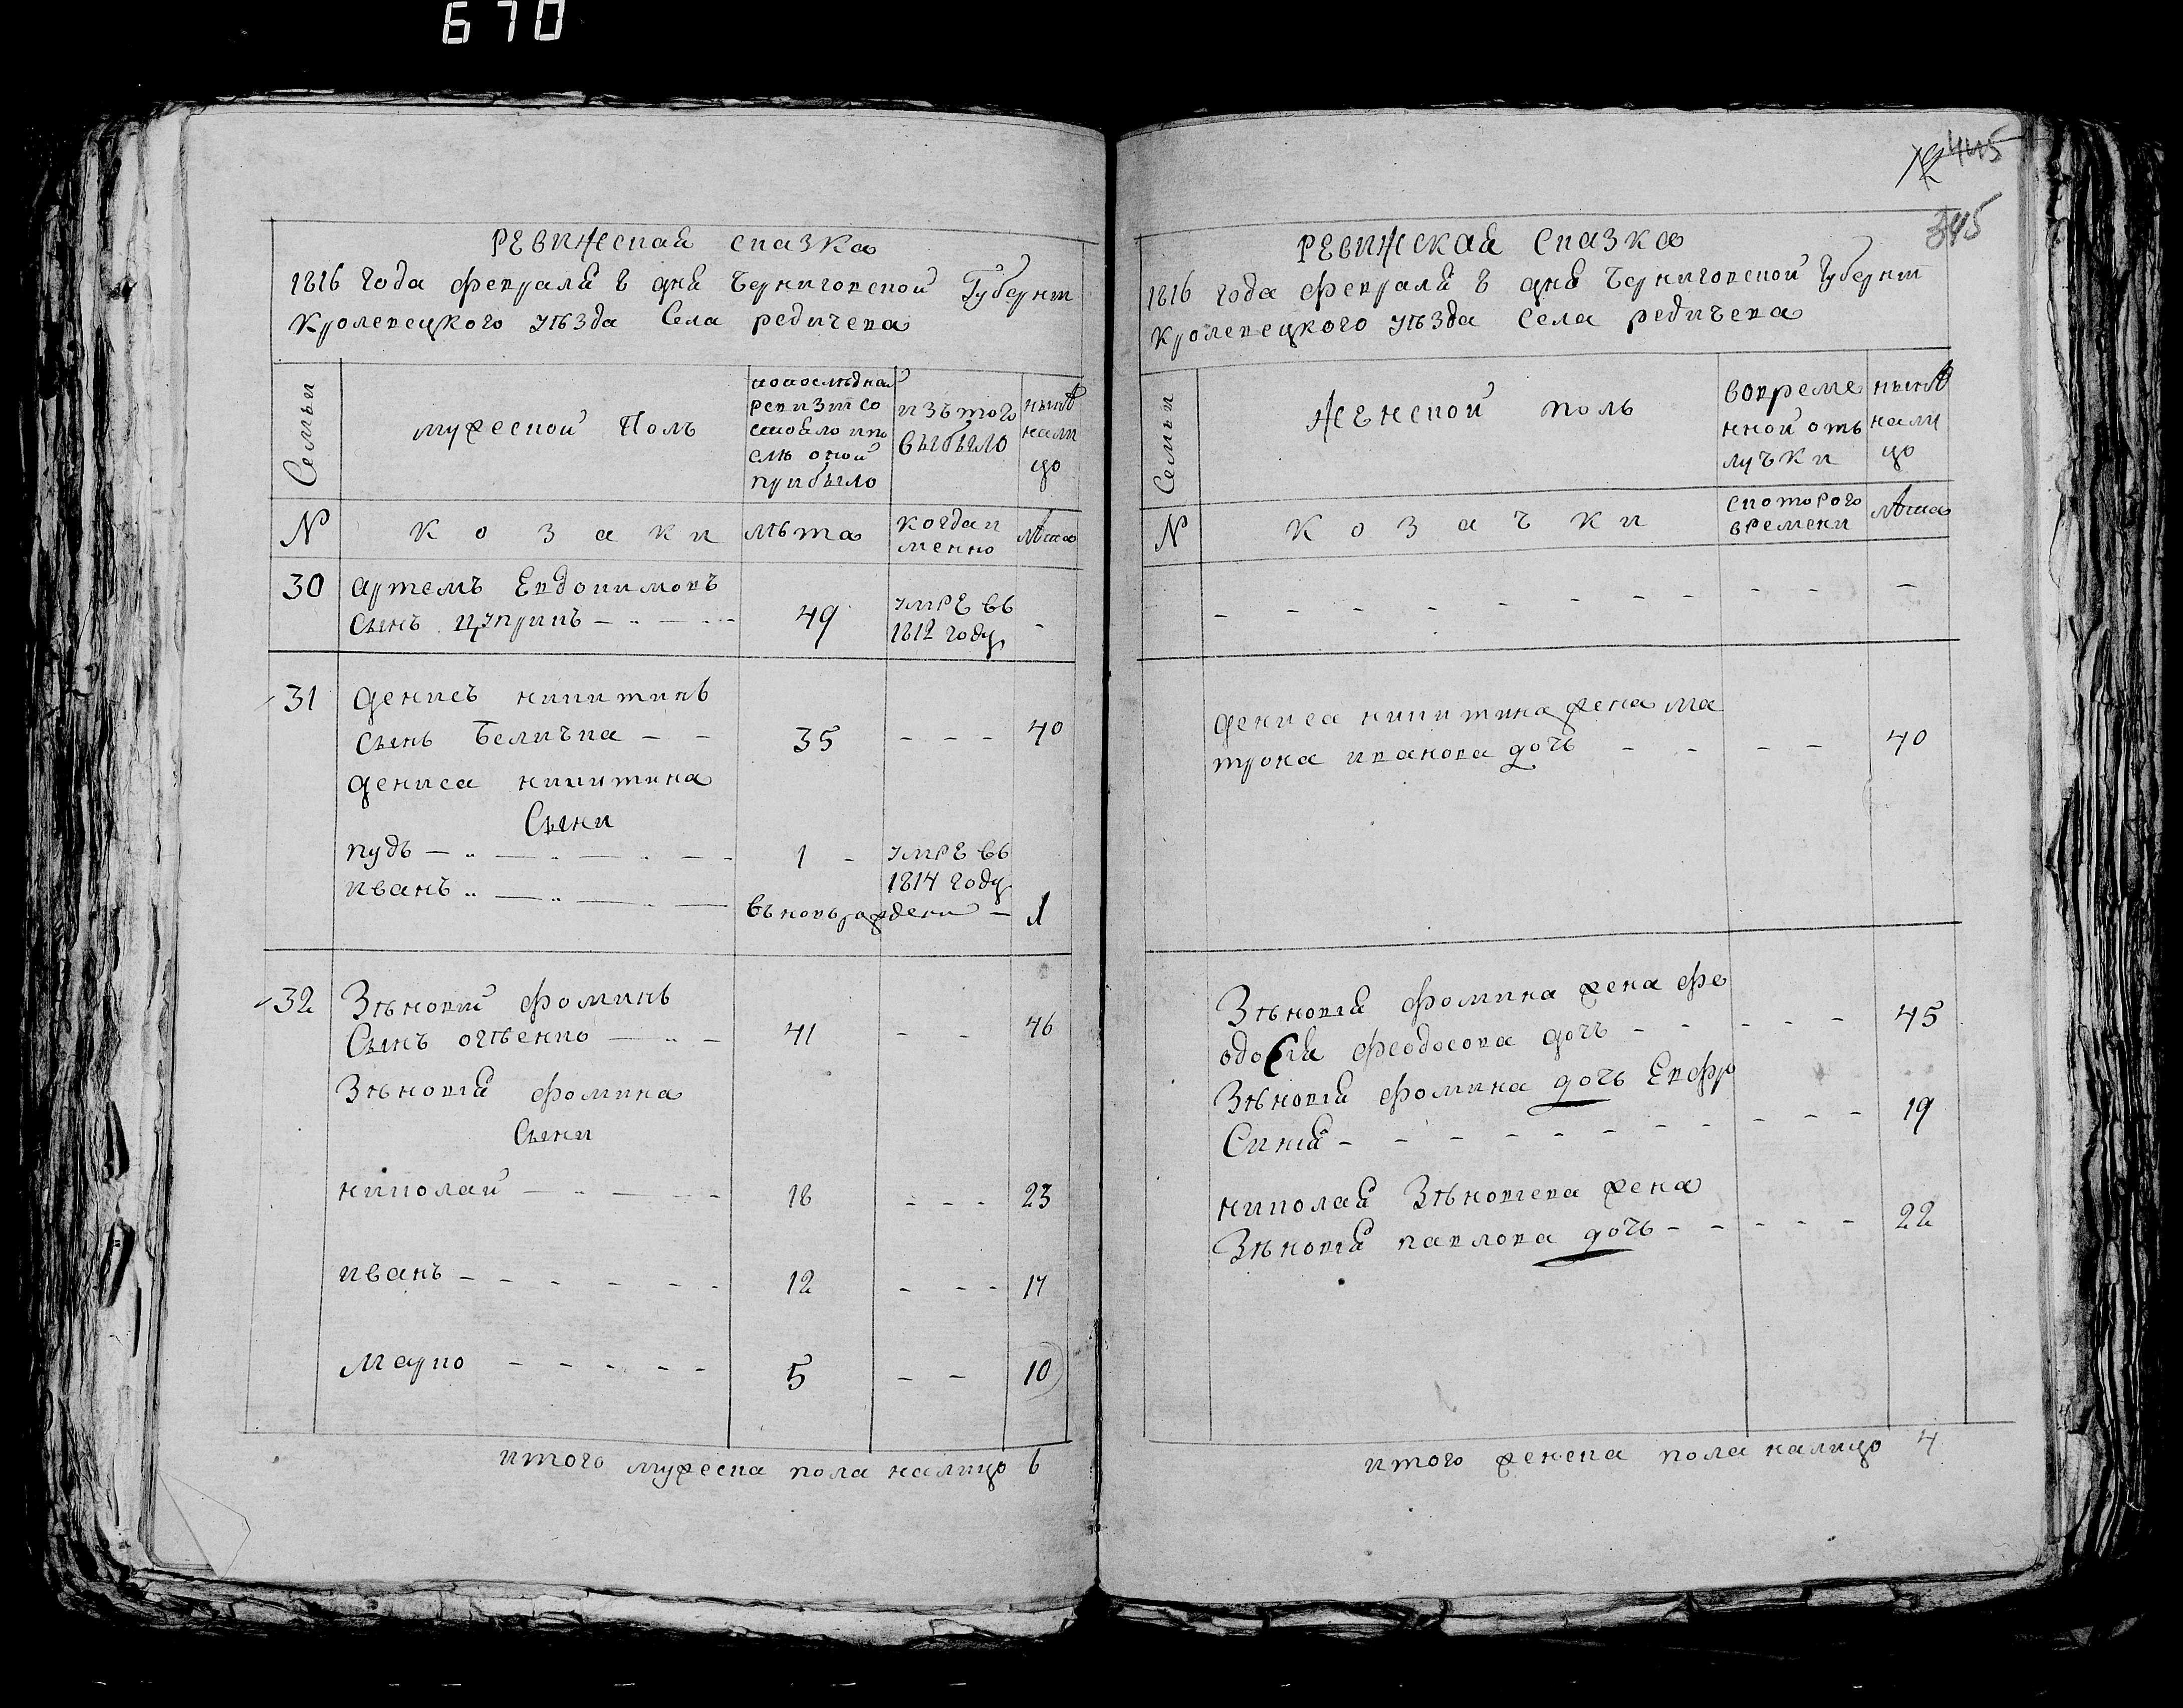 670
Ревижская сказка
1816 года февраля 8 дня Черниговской Губернїи
Кролевецкого уѣзда Села редичева
Семьи
мужеской Полъ
попоследнай
ревизїи со
стояло ипо
слѣ оной
прибыло
изътого
выбыло
нынѣ
нали
цо
N
козаки
лѣта
когда и
менно
лѣта
30 артемъ Евдокимовъ
сынъ Цуприкъ 49 умре въ
1812 году -
31 денисъ никитинъ
сынъ Величка - - 35 - - - 40
дениса никитина
Сыни
пудъ 1 - умре въ
1814 году
иванъ
въновърождени - 1
32 Зѣновїй фоминъ
Сынъ 41 - - 46
Зѣновїя фомина
Сыни
николай 18 - - - 23
иванъ - - - - - - 12 - - - 17
марко - - - - - 5 - - 10
итого мужеска пола налицо 6
445
345
Ревижская Сказка
1816 года февраля 8 дня Черниговской Губернїи
Кролевецкого уѣзда Села редичева
Семьи
Женской полъ
вовреме
нной отъ
лучки
нынѣ
нали
цо
N
козачки
скоторого
времени
лѣта
- - - - - - - - - - - -
дениса никитина жена ма
трона иванова дочь - - - - 40
Зѣновїя фомина жена фе
одосїя феодосова дочь - - - - - 45
Зѣновїя фомина дочь Евфро
Синїя - - - - - - - - - - - 19
николая Зѣновїева жена
Зѣновїя павлова дочь - - - - - 22
итого женска пола налицо 4